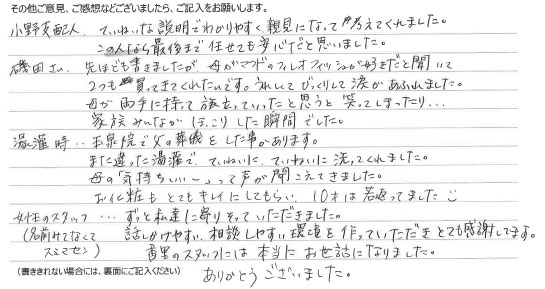 その他ご意見、ご感想などございましたら、ご記入をお願いします。
小野支配人、ていねいな説明でわかりやすく親見になって考えてくれました。
この人なら最後まで任せても安心だと思いました。
磯田さん 先ほども書きましたが 母がマクドのフィレオフィッシュが好きだと聞いて
2つも買ってきてくれたんです。うれしくてびっくりして涙があふれました。
母が両手に持って旅立っていったと思うと笑ってしまったり…
家族みんながほっこりした瞬間でした。
湯灌時‥玉泉院で父の葬儀をした事があります。
また違った湯灌で、ていねいに、ていねいに洗ってくれました。
母の「気持ちいい〜」って声が聞こえてきました。
お化粧もとてもキレイにしてもらい、10才は若返ってました
女性のスタッフ…ずっと私達に寄りそっていただきました。
(名前みてなくてスミマセン) 話しかけやすい、相談しやすい環境を作っていただきとても感謝してます。
香里のスタッフには本当にお世話になりました。
(書ききれない場合には、裏面にご記入ください) ありがとうございました。